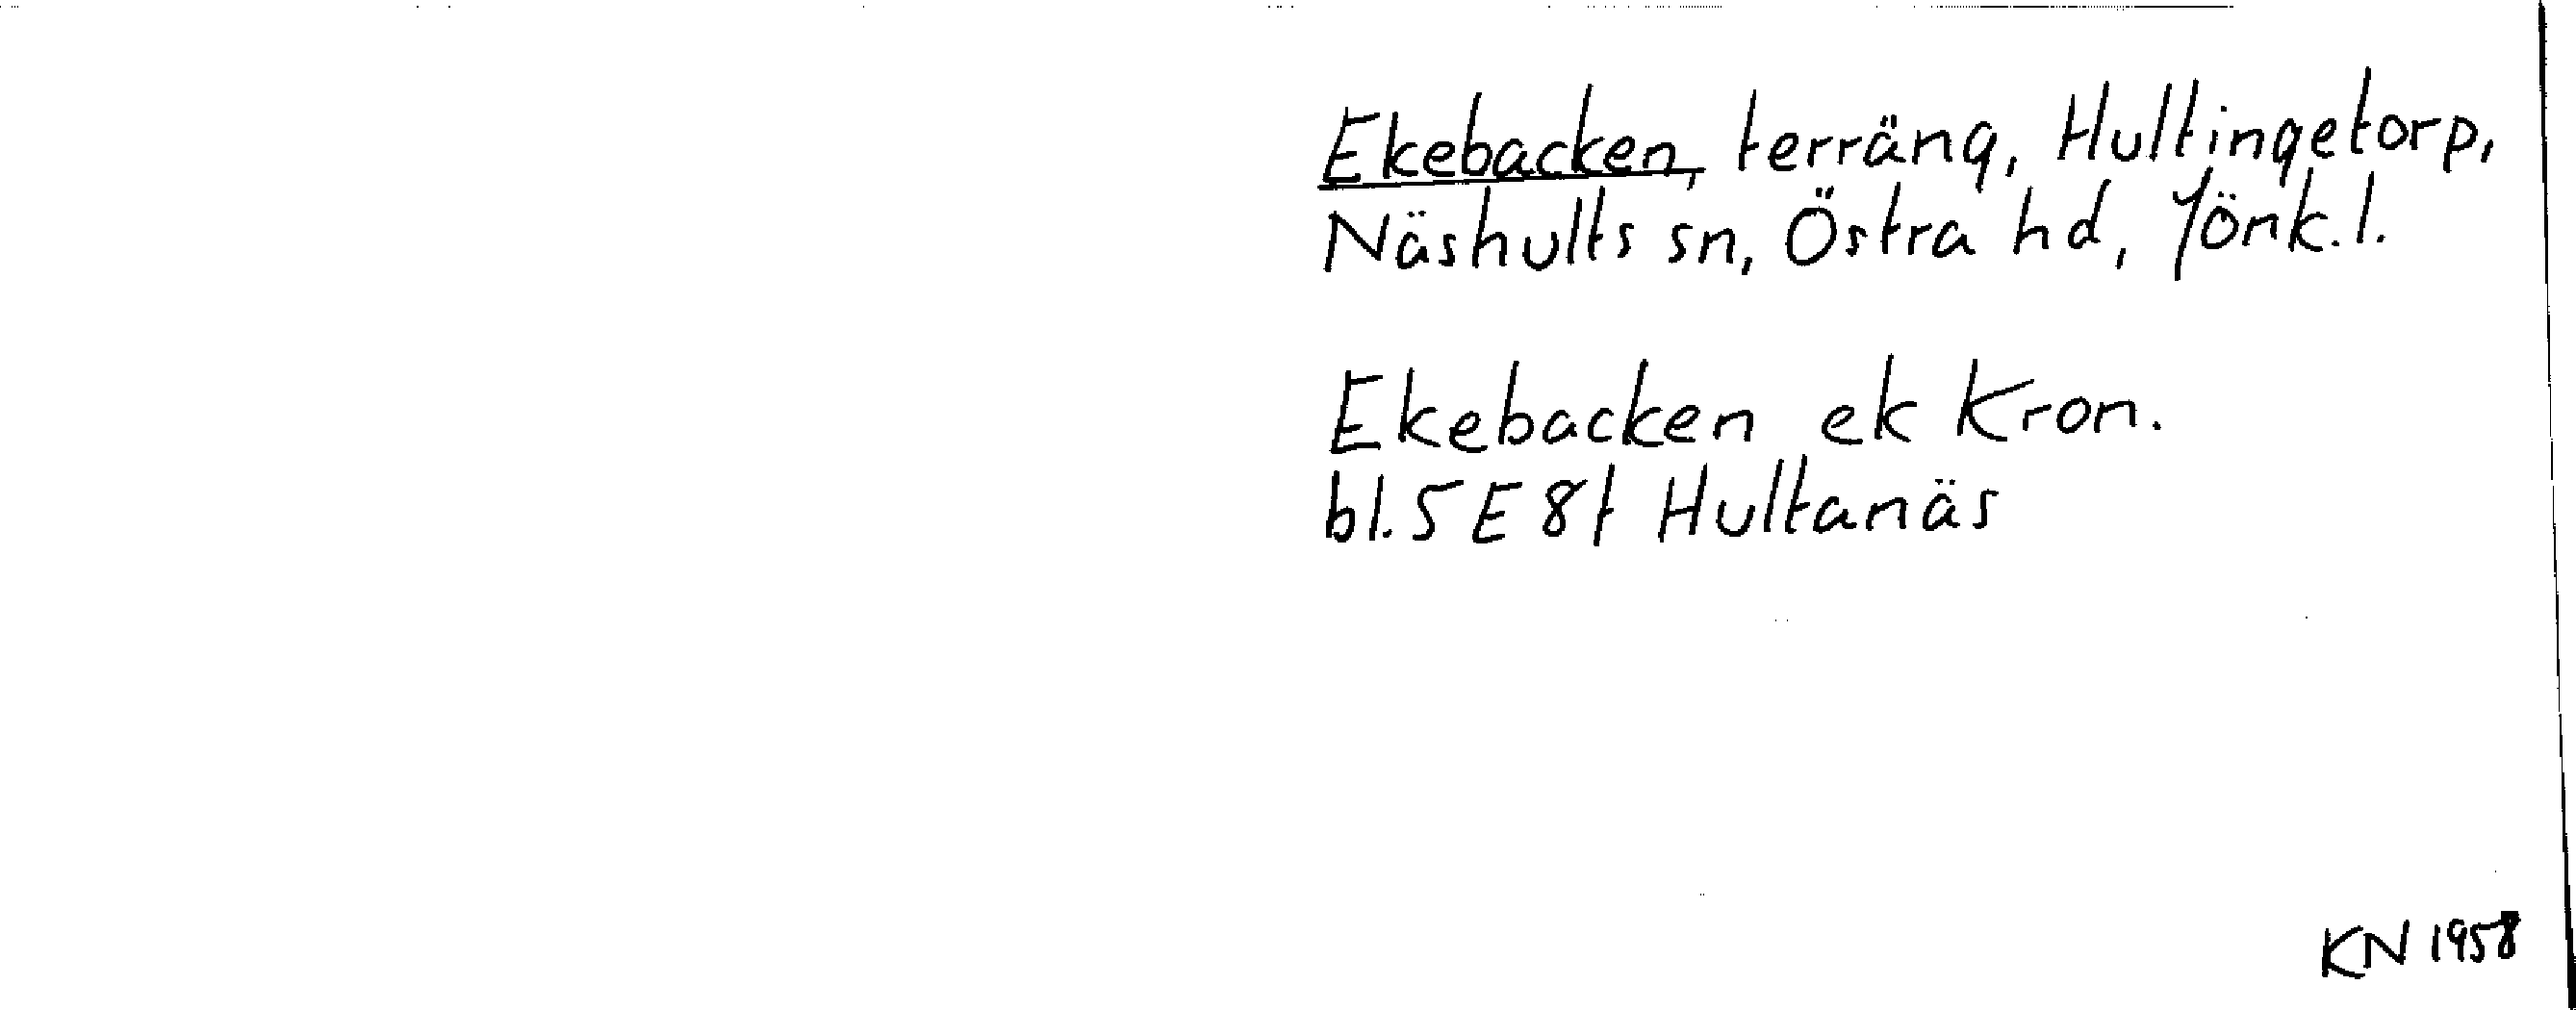 Ekebacken, terräng, Hultingetorp,
Näshults sn, Östra hd, Jönk.l.
Ekebacken ek Kron.
bl. 5 E 8f Hultanäs
KN 1958